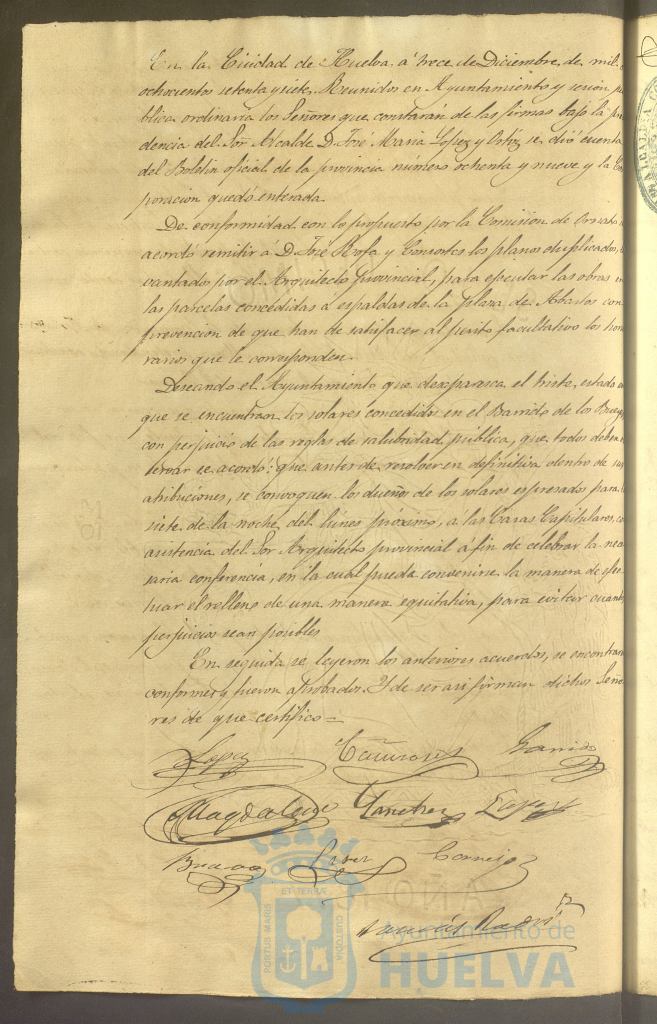 En la Ciudad de Huelva á trece de Diciembre de mil
ochocientos setenta y siete. Reunidos en Ayuntamiento y sesion pú
blica ordinaria los Señores que constarán de las firmas bajo la pre
dencia del Sor Alcalde D. José Maria Lopez y Ortiz se dió cuenta
del Boletin oficial de la provincia número ochenta y nueve y la Cor
poracion quedó enterada.
De conformidad con lo propuesto por la Comision de Ornato
acordó remitir á D. José Rofa y Consortes los planos duplicados,
vantados por el Arquitecto provincial, para ejecutar las obras
las parcelas concedidas a espaldas de la plaza de Abastos con
prevencion de que han de satisfacer al perito facultativo los hon
rarios que le corresponden.
Deseando el Ayuntamiento que desaparezca el triste estado en
que se encuentran los solares concedidos en el Barrio de los
con perjuicio de las reglas de salubridad pública, que todos deben
servar se acordó: que antes de resolver en definitiva dentro de sus
atribuciones, se convoquen los dueños de los solares espresados para
siete de la noche del lúnes próximo, á las Casas Capitulares, con
asistencia del Sor Arquitecto provincial á fin de celebrar la nece
saria conferencia, en la cual pueda convenirse la manera de efec
tuar el relleno de una manera equitativa, para evitar cuantos
perjuicios sean posibles
En seguida se leyeron los anteriores acuerdos, se encontraron
conformes y fueron aprobados. Y de ser asi firman dichos Seño
res de que certifico =
Lopez Garrido
Magdalena Sanchez Lopez
Bravo Cornejo
ET TERRAE
PORTUS MARIS
CUSTODIA
Ayuntamiento de
HUELVA